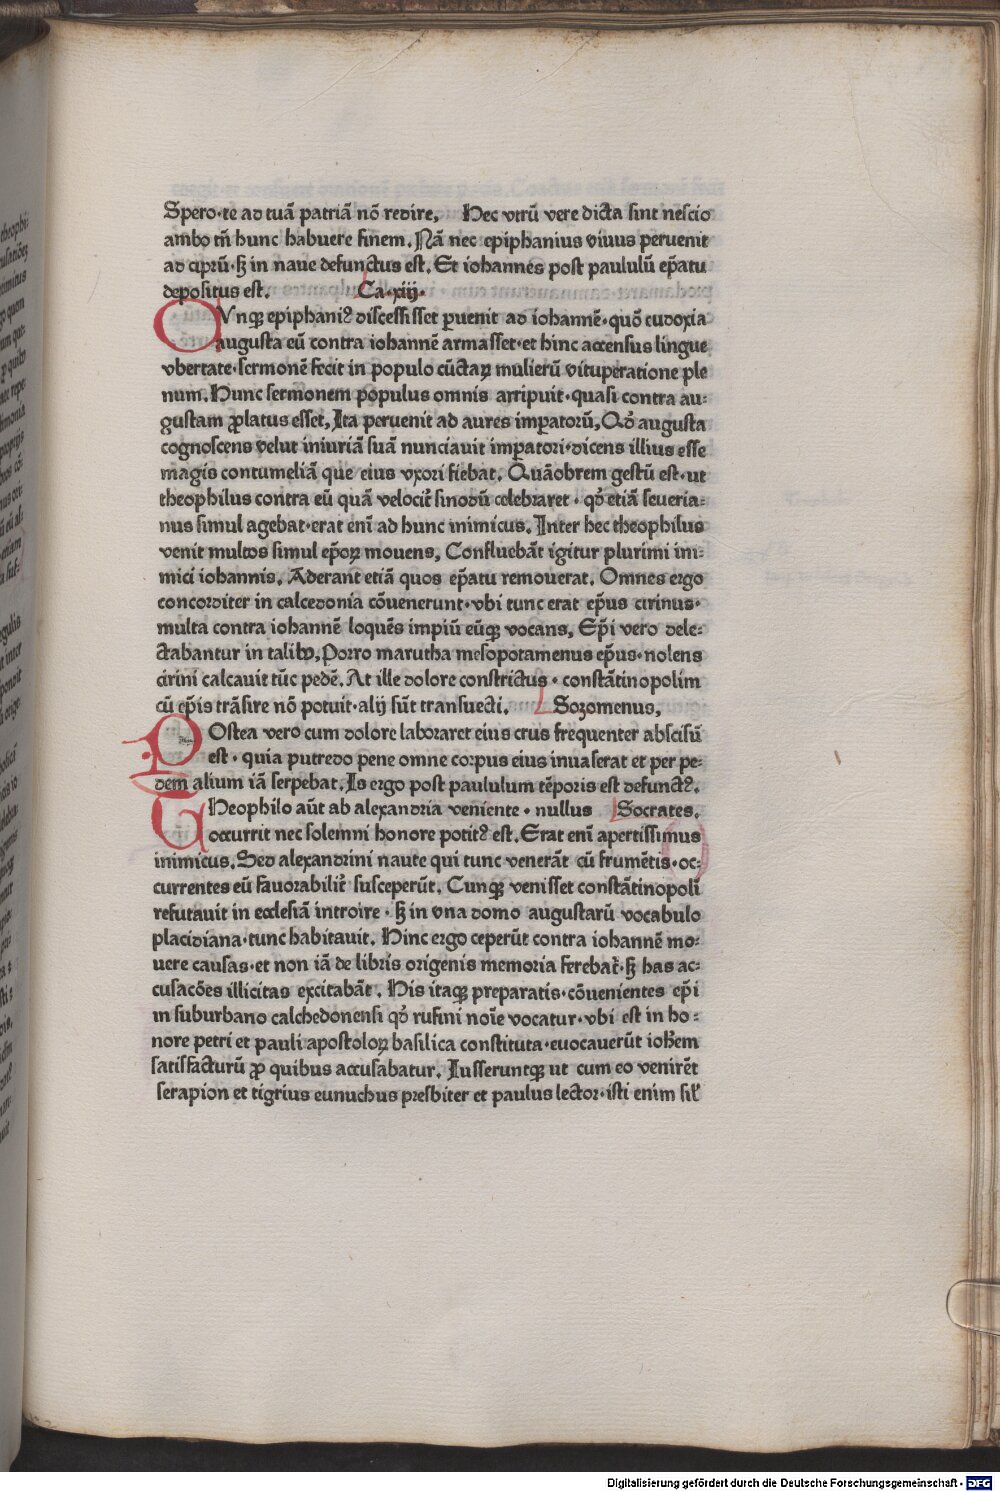 Spero·te ad tuā patriā nō redire, Hec vtrū vere dicta sint nescio
ambo tñ hunc habuere finem. Nā nec epiphanius viuus peruenit
ad ciprū·sꝫ in naue defunctus est. Et iohannes post paululū ep̄atu
depositus est. Ca·xiij·
CVnqꝫ epiphaniꝰ discessisset ꝑuenit ad iohannē·quō eudoxia
augusta eū contra iohannē armasset·et hinc accensus lingue
vbertate·sermonē fecit in populo cūctaꝝ mulierū vituperatione ple
num. Hunc sermonem populus omnis arripuit·quasi contra au⸗
gustam ꝓlatus esset, Ita peruenit ad aures imꝑatorū, Qd̓ augusta
cognoscens velut iniuriā suā nunciauit imꝑatori·dicens illius esse
magis contumeliā que eius vxori fiebat. Quāobrem gestū est·ut
theophilus contra eū quā velocit̓ sinodū celebraret·qd̓ etiā seueria⸗
nus simul agebat·erat eni̅ ad hunc inimicus. Inter hec theophilus
venit multos simul ep̄oꝝ mouens, Confluebāt igitur plurimi ini⸗
mici iohannis. Aderant etiā quos ep̄atu remouerat. Omnes ergo
concorditer in calcedonia cōuenerunt·vbi tunc erat ep̄us cirinus·
multa contra iohannē loquēs impiū eūqꝫ vocans, Ep̄i vero dele⸗
ctabantur in talibꝰ, Porro marutha mesopotamenus ep̄us·nolens
cirini calcauit tūc pedē. At ille dolore constrictus·constātinopolim
cū ep̄is trāsire nō potuit·alij sūt transuecti. Sozomenus,
POstea vero cum dolore laboraret eius crus frequenter abscisū
est·quia putredo pene omne corpus eius inuaserat et per pe⸗
dem alium iā serpebat. Is ergo post paululum tēporis est defunctꝰ.
THeophilo aūt ab alexandria veniente·nullus Socrates.
occurrit nec solemni honore potitꝰ est. Erat eni̅ apertissimus
inimicus. Sed alexandrini naute qui tunc venerāt cū frumētis·oc⸗
currentes eū fauorabilit̓ susceperūt. Cunqꝫ venisset constātinopolī
refutauit in ecclesiā introire·sꝫ in vna domo augustarū vocabulo
placidiana·tunc habitauit. Hinc ergo ceperūt contra iohannē mo⸗
uere causas·et non iā de libris origenis memoria ferebat̓·sꝫ has ac⸗
cusacōes illicitas excitabāt. His itaqꝫ preparatis·cōuenientes ep̄i
in suburbano calchedonensi qd̓ rufini noīe vocatur·vbi est in ho⸗
nore petri et pauli apostoloꝝ basilica constituta·euocauerūt ioh̄em
satisfacturū ꝓ quibus accusabatur. Iusseruntqꝫ ut cum eo venirēt
serapion et tigrius eunuchus presbiter et paulus lector·isti enim sil̓
Digitalisierung gefördert durch die Deutsche Forschungsgemeinschaft · DFG